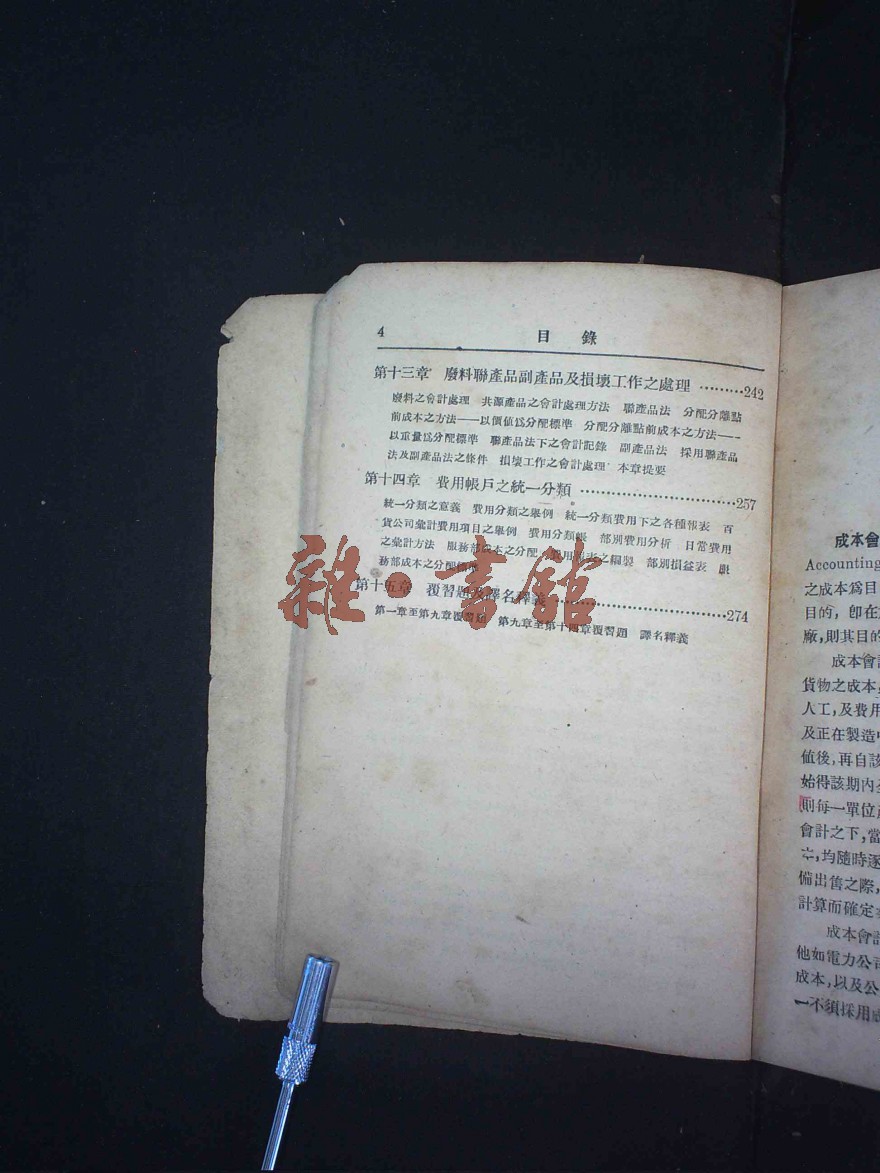 4
目 錄
第十三章 廢料聯產品副產品及損壞工作之處理 ………242
廢料之會計處理 共源產品之會計處理方法 聯產品法 分配分離點
前成本之方法——以價值爲分配標準 分配分離點前成本之方法——
以重量爲分配標準 聯產品法下之會計記錄 副產品法 採用聯產品
法及副產品法之條件 損壞工作之會計處理 本章提要
第十四章 費用帳戶之統一分類 ……………………………257
統一分類之意義 費用分類之舉例 統一分類費用下之各種報表 百
貨公司彙計費用項目之舉例 費用分類帳 部別費用分析 日常費用
之彙計方法 服務部成本之分配 費用報表之編製 部別損益表 服
務部成本之分配
第十五章 覆習題及譯名釋義 ……………………………274
第一章至第九章覆習題 第九章至第十四章覆習題 譯名釋義
雜·書館
成本會
Accounting
之成本爲目
目的, 卽在
廠,則其目的
成本會計
貨物之成本
人工,及費用
及正在製造中
値後,再自該
始得該期內
則每一單位
會計之下,當
均隨時逐
備出售之際,
計算而確定
成本會計
他如電力公司
成本,以及公
一不須採用